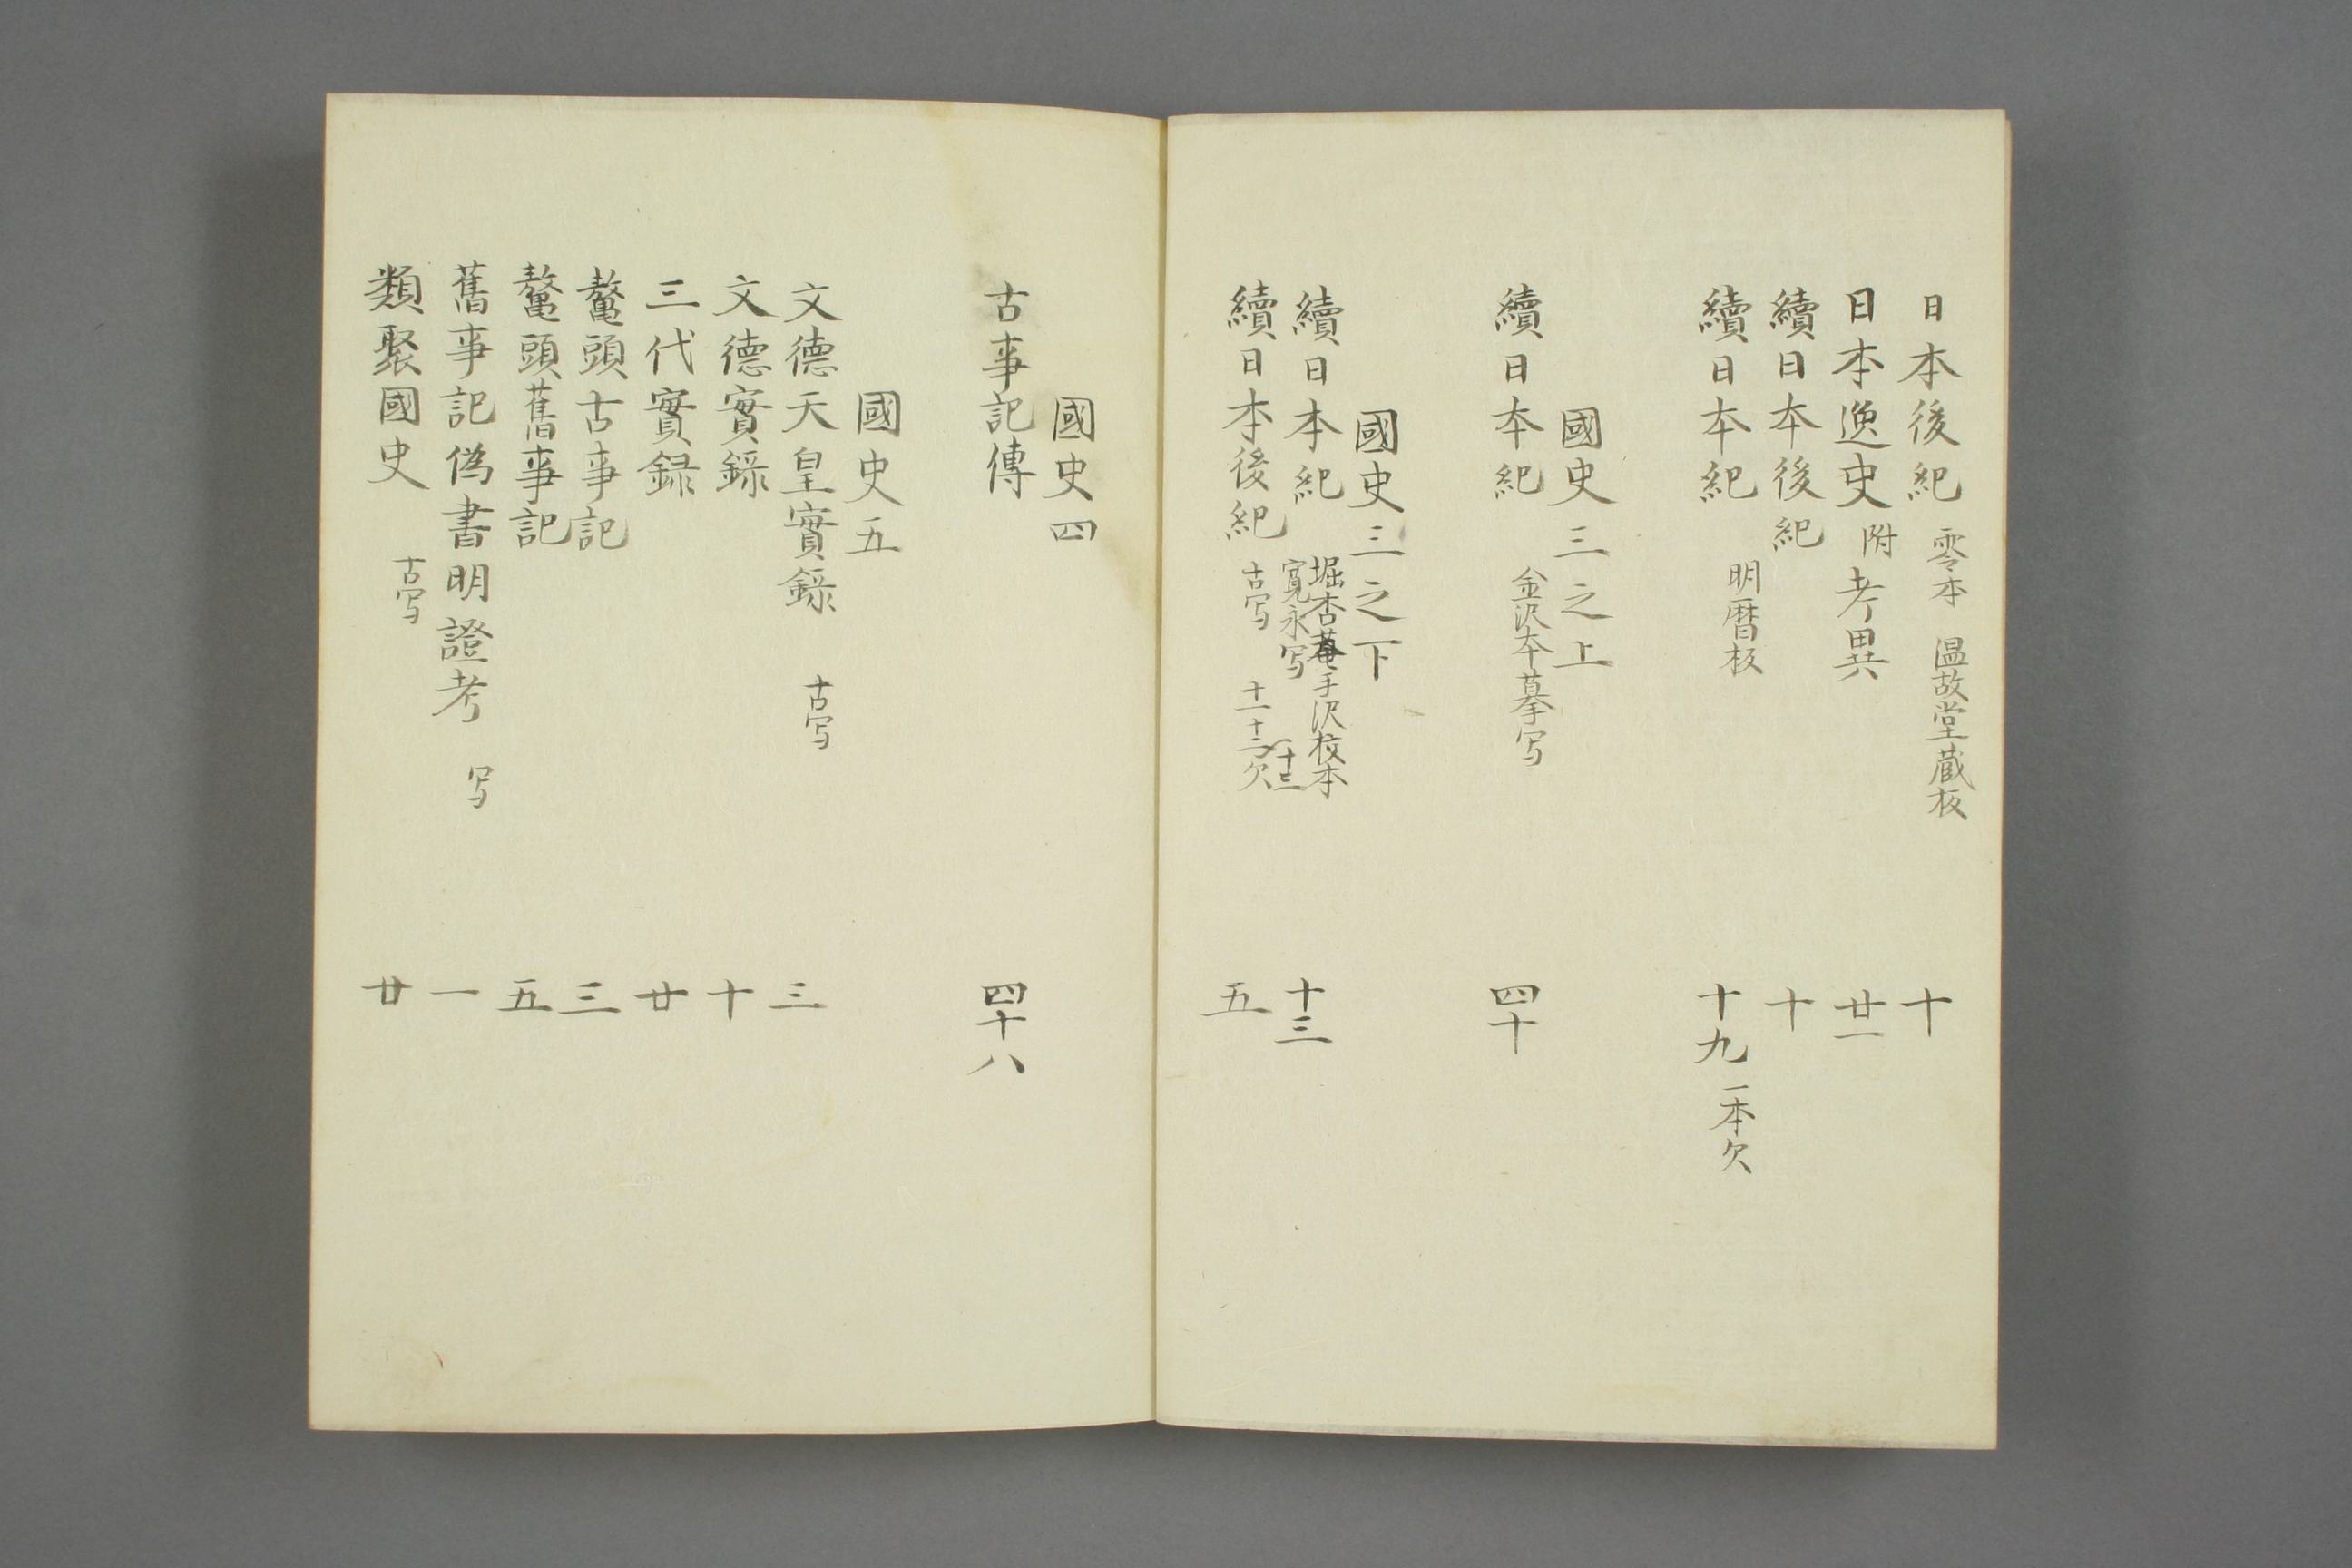 日本後紀 零本 温故堂蔵板 十
日本逸史 附考異 廿一
續日本後紀 十
續日本紀 明暦板 十九 一本欠
國史三之上
續日本紀 金沢本摹写 四十
國史三之下
續日本紀 堀杏菴手沢校本 寛永写 十三
續日本後紀 古写 十一十二欠 五
國史四
古事記傳 四十八
國史五
文德天皇實録 古写 三
文德實録 十
三代實録 廿
鼇頭古事記 三
鼇頭舊事記 五
舊事記偽書明證考 写 一
類聚國史 古写 廿